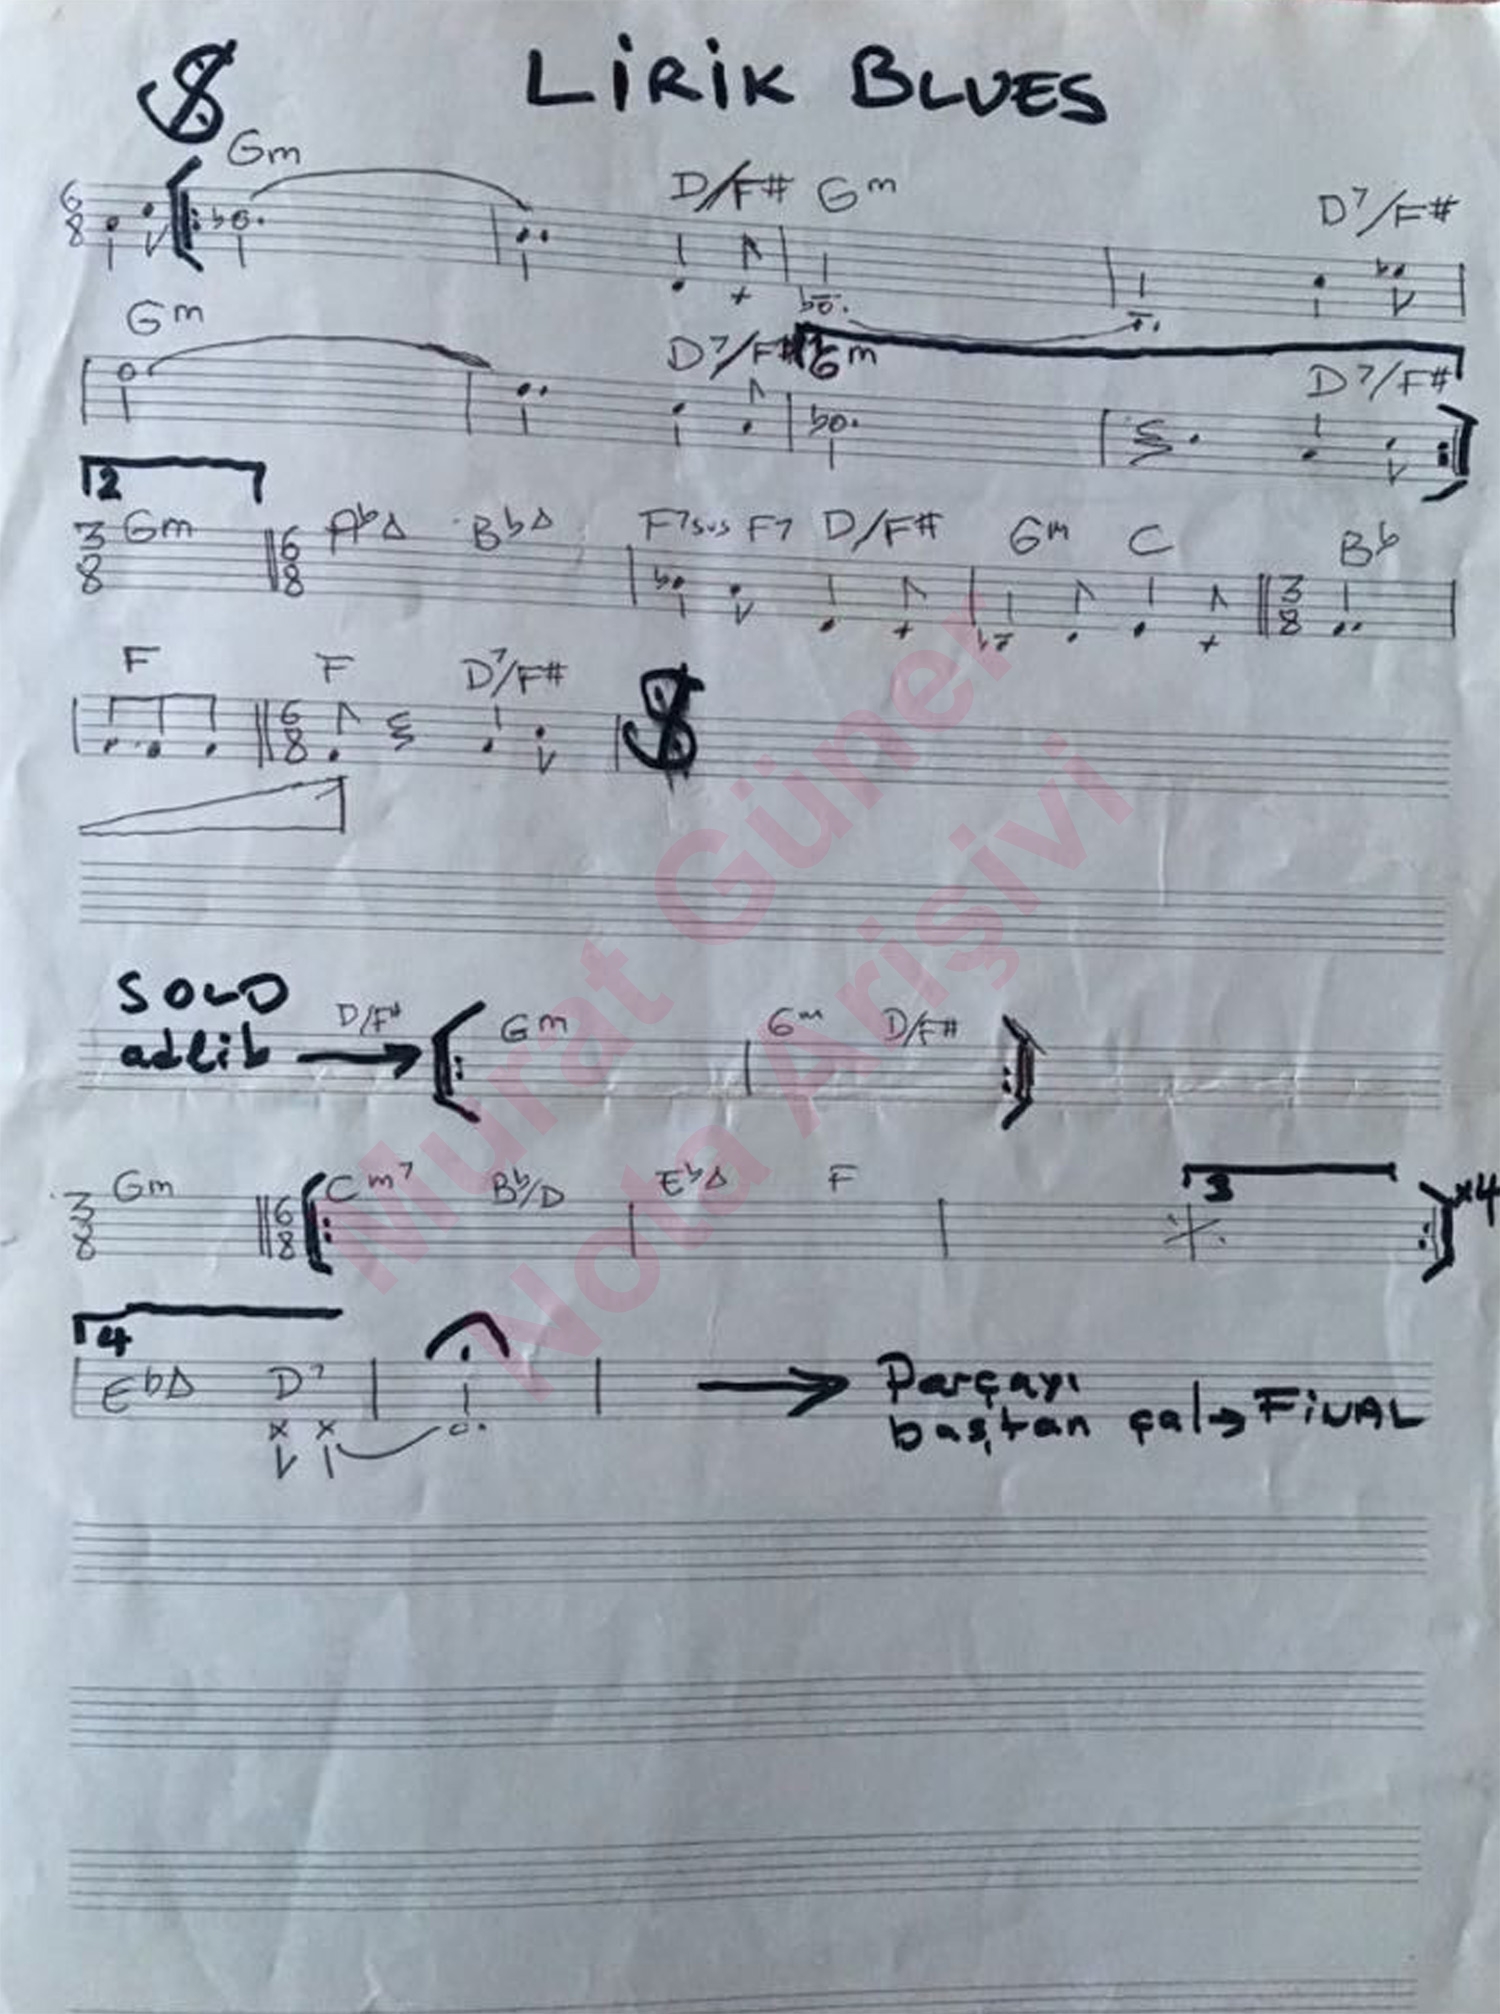 LiRiK BLUES
Gm D/F# Gm D7/F#
6
8
Gm D7/F# Gm D7/F#
2
3
8
Gm
6
8
AbΔ BbΔ F7sus F7 D/F# Gm C
3
8
Bb
F
6
8
F D7/F#
SOLO
adlib D/F# Gm Gm D/F#
3
8
Gm
6
8
Cm7 Bb/D EbΔ F
3
x4
4
EbΔ D7
Parçayı
baştan çal → FiNAL
Murat Güner
Nota Arişivi